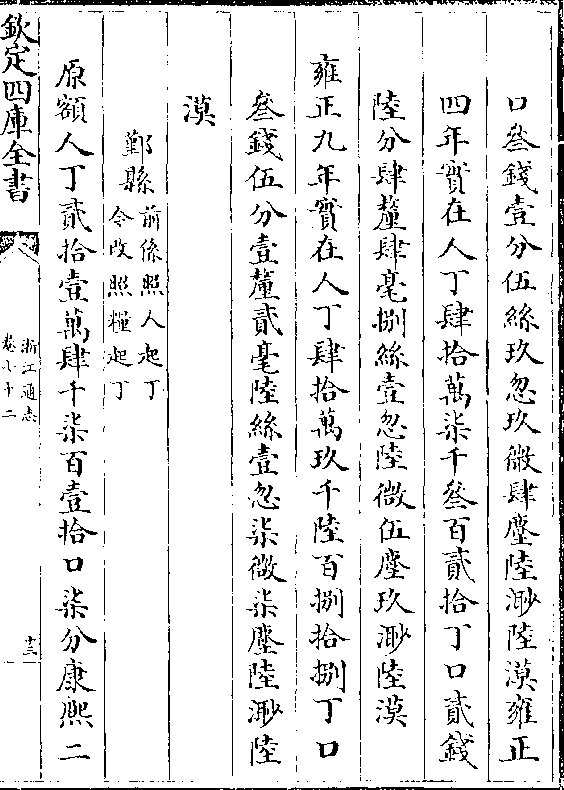 口叁錢壹分伍絲玖忽玖微肆塵陸渺陸漠雍正
四年實在人丁肆拾萬柒千叁百貳拾丁口貳錢
陸分肆釐肆毫捌絲壹忽陸微伍塵玖渺陸漠
雍正九年實在人丁肆拾萬玖千陸百捌拾捌丁口
叁錢伍分壹釐貳毫陸絲壹忽柒微柒塵陸渺陸
漠
鄞縣前係照人起丁
今改照糧起丁
原額人丁貳拾壹萬肆千柒百壹拾口柒分康熙二
欽定四庫全書
浙江通志
卷七十二
十三